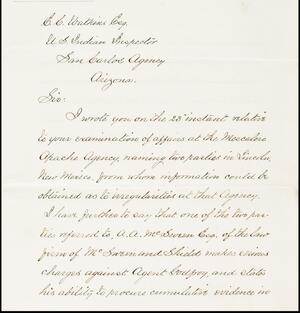 E. C. Watkins Esq.
U. S. Indian Inspector
San Carlos Agency
Arizona.
Sir:
I wrote you on the 23d instant relative
to your examination of affairs at the Mescalero
Apache Agency, naming two parties in Lincoln,
New Mexico, from whom information could be
obtained as to irregularities at that Agency.
I have further to say that one of the two par-
ties referred to, A. A. McSween Esq. of the law
firm of McSween and Shield makes serious
charges against Agent Godfroy, and states
his ability to procure cumulative evidence in